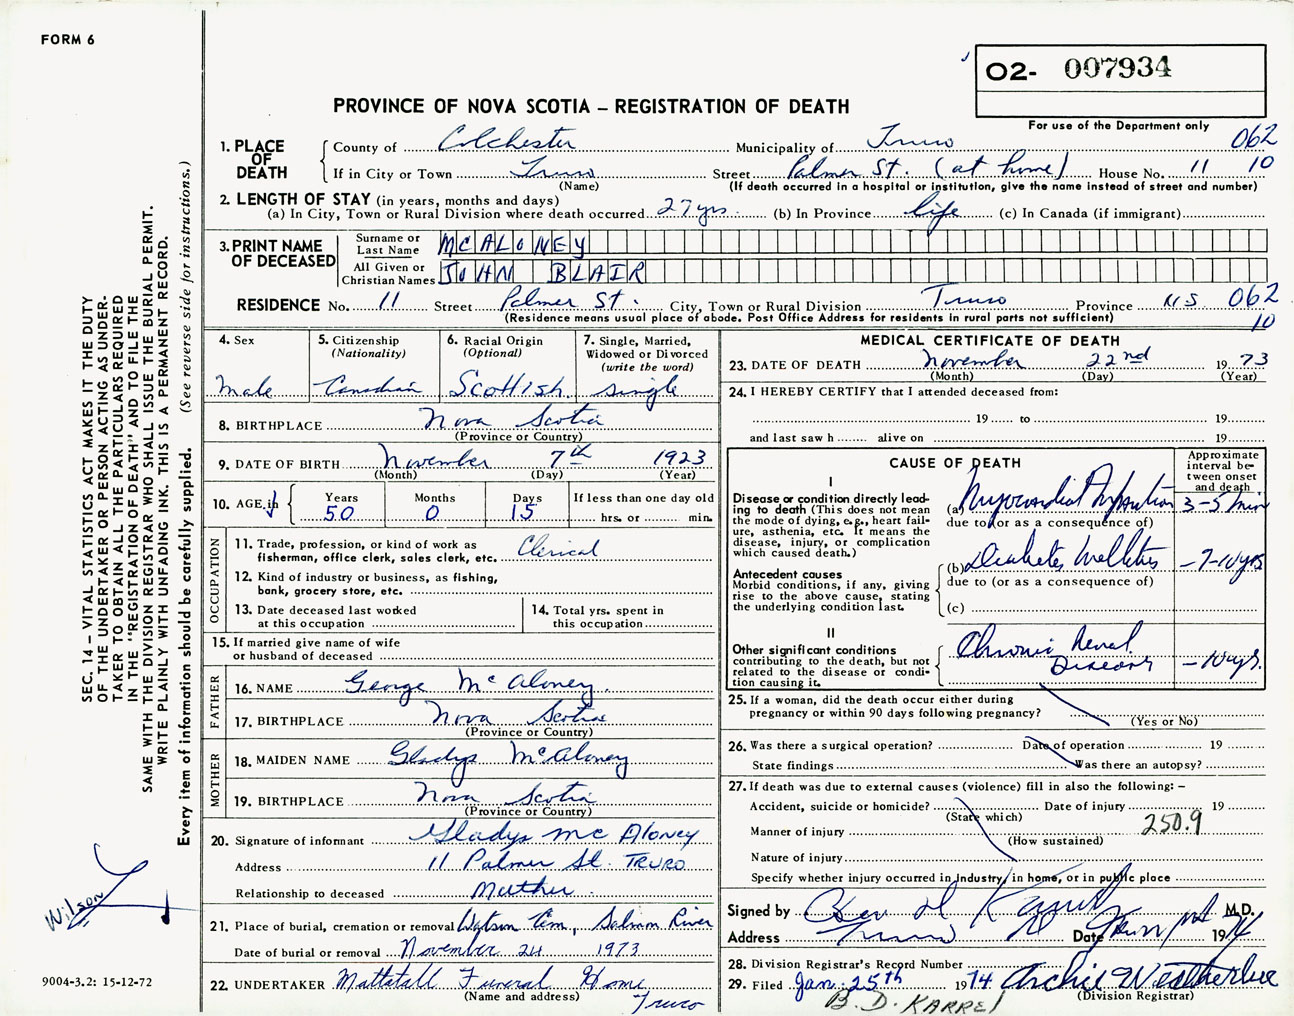 FORM 6
O2- 007934
PROVINCE OF NOVA SCOTIA – REGISTRATION OF DEATH
For use of the Department only
1. PLACE OF DEATH
County of Colchester Municipality of Truro 062
If in City or Town Truro Street Palmer St. (at home) House No. 11 10
(Name) (If death occurred in a hospital or institution, give the name instead of street and number)
2. LENGTH OF STAY (in years, months and days)
(a) In City, Town or Rural Division where death occurred 27 yrs. (b) In Province life (c) In Canada (if immigrant)
3. PRINT NAME OF DECEASED
Surname or Last Name McALONEY
All Given or Christian Names JOHN BLAIR
RESIDENCE No. 11 Street Palmer St. City, Town or Rural Division Truro Province N.S. 062
(Residence means usual place of abode. Post Office Address for residents in rural parts not sufficient) 10
4. Sex
Male
5. Citizenship
(Nationality)
Canadian
6. Racial Origin
(Optional)
Scottish
7. Single, Married,
Widowed or Divorced
(write the word)
single
8. BIRTHPLACE Nova Scotia
(Province or Country)
9. DATE OF BIRTH November 7th 1923
(Month) (Day) (Year)
10. AGE in
Years Months Days If less than one day old
50 0 15 hrs. or min.
OCCUPATION
11. Trade, profession, or kind of work as
fisherman, office clerk, sales clerk, etc. Clerical
12. Kind of industry or business, as fishing,
bank, grocery store, etc.
13. Date deceased last worked
at this occupation
14. Total yrs. spent in
this occupation
15. If married give name of wife
or husband of deceased
FATHER
16. NAME George McAloney.
17. BIRTHPLACE Nova Scotia
(Province or Country)
MOTHER
18. MAIDEN NAME Gladys McAloney
19. BIRTHPLACE Nova Scotia
(Province or Country)
20. Signature of informant Gladys Mc Aloney
Address 11 Palmer St. TRURO
Relationship to deceased Mother
21. Place of burial, cremation or removal Watson Cem, Salmon River
Date of burial or removal November 24 1973
22. UNDERTAKER Mattatall Funeral Home
(Name and address) Truro
MEDICAL CERTIFICATE OF DEATH
23. DATE OF DEATH November 22nd 1973
(Month) (Day) (Year)
24. I HEREBY CERTIFY that I attended deceased from:
19 to 19
and last saw h alive on 19
CAUSE OF DEATH
Approximate
interval be-
tween onset
and death
I
Disease or condition directly lead-
ing to death (This does not mean
the mode of dying, e.g., heart fail-
ure, asthenia, etc. It means the
disease, injury, or complication
which caused death.)
(a) Myocardial Infarction 3-5 min
due to (or as a consequence of)
Antecedent causes
Morbid conditions, if any, giving
rise to the above cause, stating
the underlying condition last.
(b) Diabetes Mellitus -7-10 yrs
due to (or as a consequence of)
(c)
II
Other significant conditions
contributing to the death, but not
related to the disease or condi-
tion causing it.
Chronic Renal
Disease -10 yrs.
25. If a woman, did the death occur either during
pregnancy or within 90 days following pregnancy?
(Yes or No)
26. Was there a surgical operation? Date of operation 19
State findings Was there an autopsy?
27. If death was due to external causes (violence) fill in also the following: –
Accident, suicide or homicide? Date of injury 19
(State which)
Manner of injury 250.9
(How sustained)
Nature of injury
Specify whether injury occurred in industry, in home, or in public place
Signed by M.D.
Address Truro Date 1974
28. Division Registrar's Record Number
29. Filed Jan. 25th 1974 Archie Weatherbee
(Division Registrar)
B. D. KARREL
SEC. 14 – VITAL STATISTICS ACT MAKES IT THE DUTY
OF THE UNDERTAKER OR PERSON ACTING AS UNDER-
TAKER TO OBTAIN ALL THE PARTICULARS REQUIRED
IN THE "REGISTRATION OF DEATH" AND TO FILE THE
SAME WITH THE DIVISION REGISTRAR WHO SHALL ISSUE THE BURIAL PERMIT.
WRITE PLAINLY WITH UNFADING INK. THIS IS A PERMANENT RECORD.
Every item of information should be carefully supplied. (See reverse side for instructions.)
Wilson
9004-3.2: 15-12-72